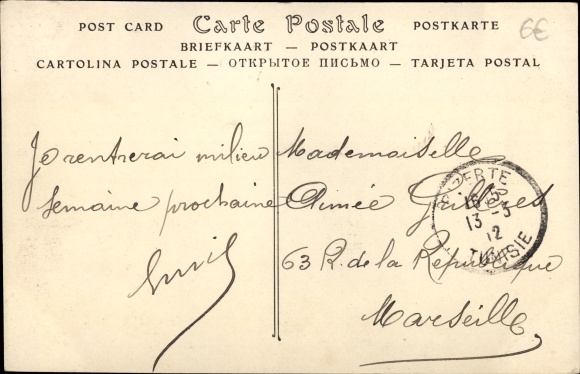 POST CARD Carte Postale POSTKARTE
BRIEFKAART — POSTKAART
CARTOLINA POSTALE — ОТКРЫТОЕ ПИСЬМО — TARJETA POSTAL
6€
Je rentrerai milieu
semaine prochaine
Mademoiselle
Aimée
63 R. de la République
Marseille
BIZERTE
13 - 3
12
TUNISIE